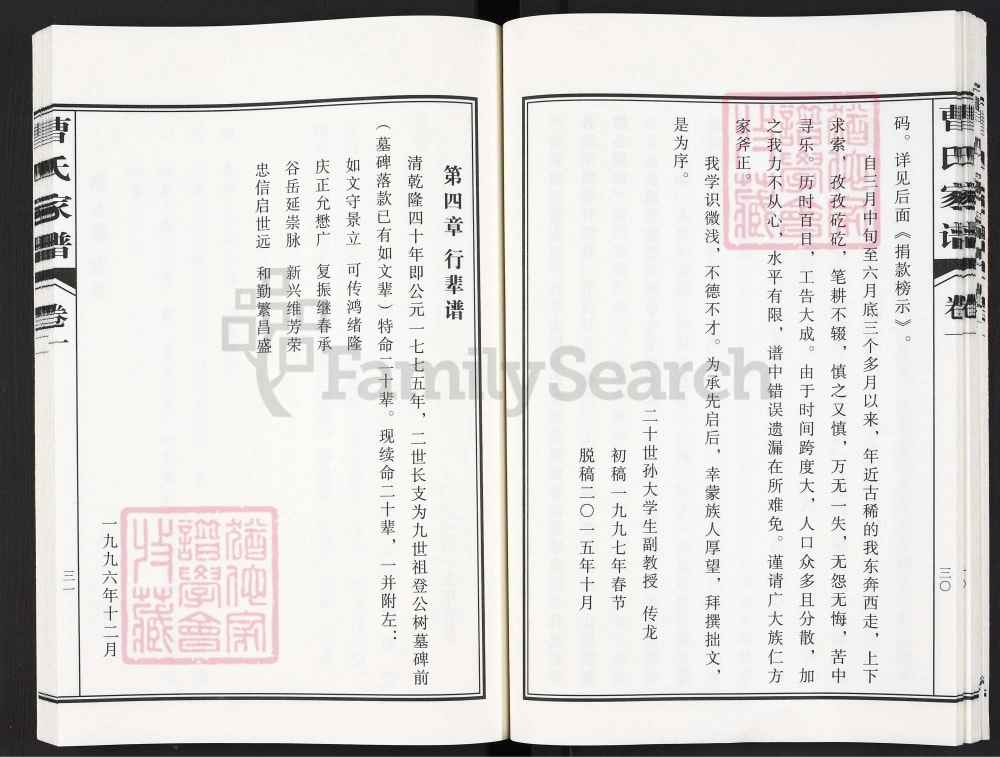 码。详见后面《捐款榜示》。
自三月中旬至六月底三个多月以来，年近古稀的我东奔西走，上下
求索，孜孜矻矻，笔耕不辍，慎之又慎，万无一失，无怨无悔，苦中
寻乐。历时百日，工告大成。由于时间跨度大，人口众多且分散，加
之我力不从心，水平有限，谱中错误遗漏在所难免。谨请广大族仁方
家斧正。
我学识微浅，不德不才。为承先启后，幸蒙族人厚望，拜撰拙文，
是为序。
二十世孙大学生副教授 传龙
初稿一九九七年春节
脱稿二〇一五年十月
曹氏家谱 卷一
三〇
第四章 行辈谱
清乾隆四十年即公元一七七五年，二世长支为九世祖登公树墓碑前
（墓碑落款已有如文辈）特命二十辈。现续命二十辈，一并附左：
如文守景立 可传鸿绪隆
庆正允懋广 复振继春承
谷岳延崇脉 新兴维芳荣
忠信启世远 和勤繁昌盛
一九九六年十二月
曹氏家谱 卷一
三一
FamilySearch